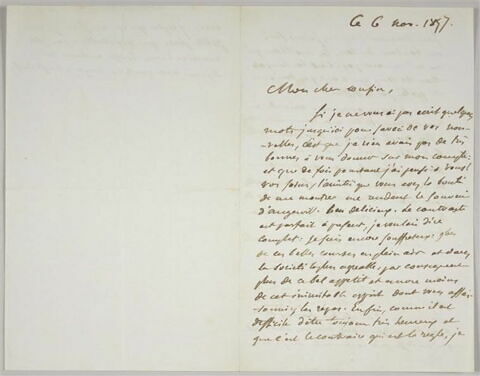 Ce 6 nov. 1857.
Mon cher cousin,
Si je ne vous ai pas écrit quelques
mots jusqu'ici pour savoir de vos nou-
velles, c'est que je n'en avais pas de très
bonnes à vous donner sur mon compte :
et que de fois pourtant j'ai pensé à vous !
Vos soins, l'amitié que vous avez la bonté
de me montrer me rendent le souvenir
d'augerville bien délicieux. Le contraste
est parfait à présent, je voulais dire
complet : je suis encore souffreteux : plus
de ces belles courses en plein air et dans
la société la plus agréable, par conséquent
plus de ce bel appétit et encore moins
de cet inimitable esprit dont vous assai-
sonniez les repas. Enfin, comme il est
difficile d'être toujours très heureux et
que c'est le contraire qui est la règle, je